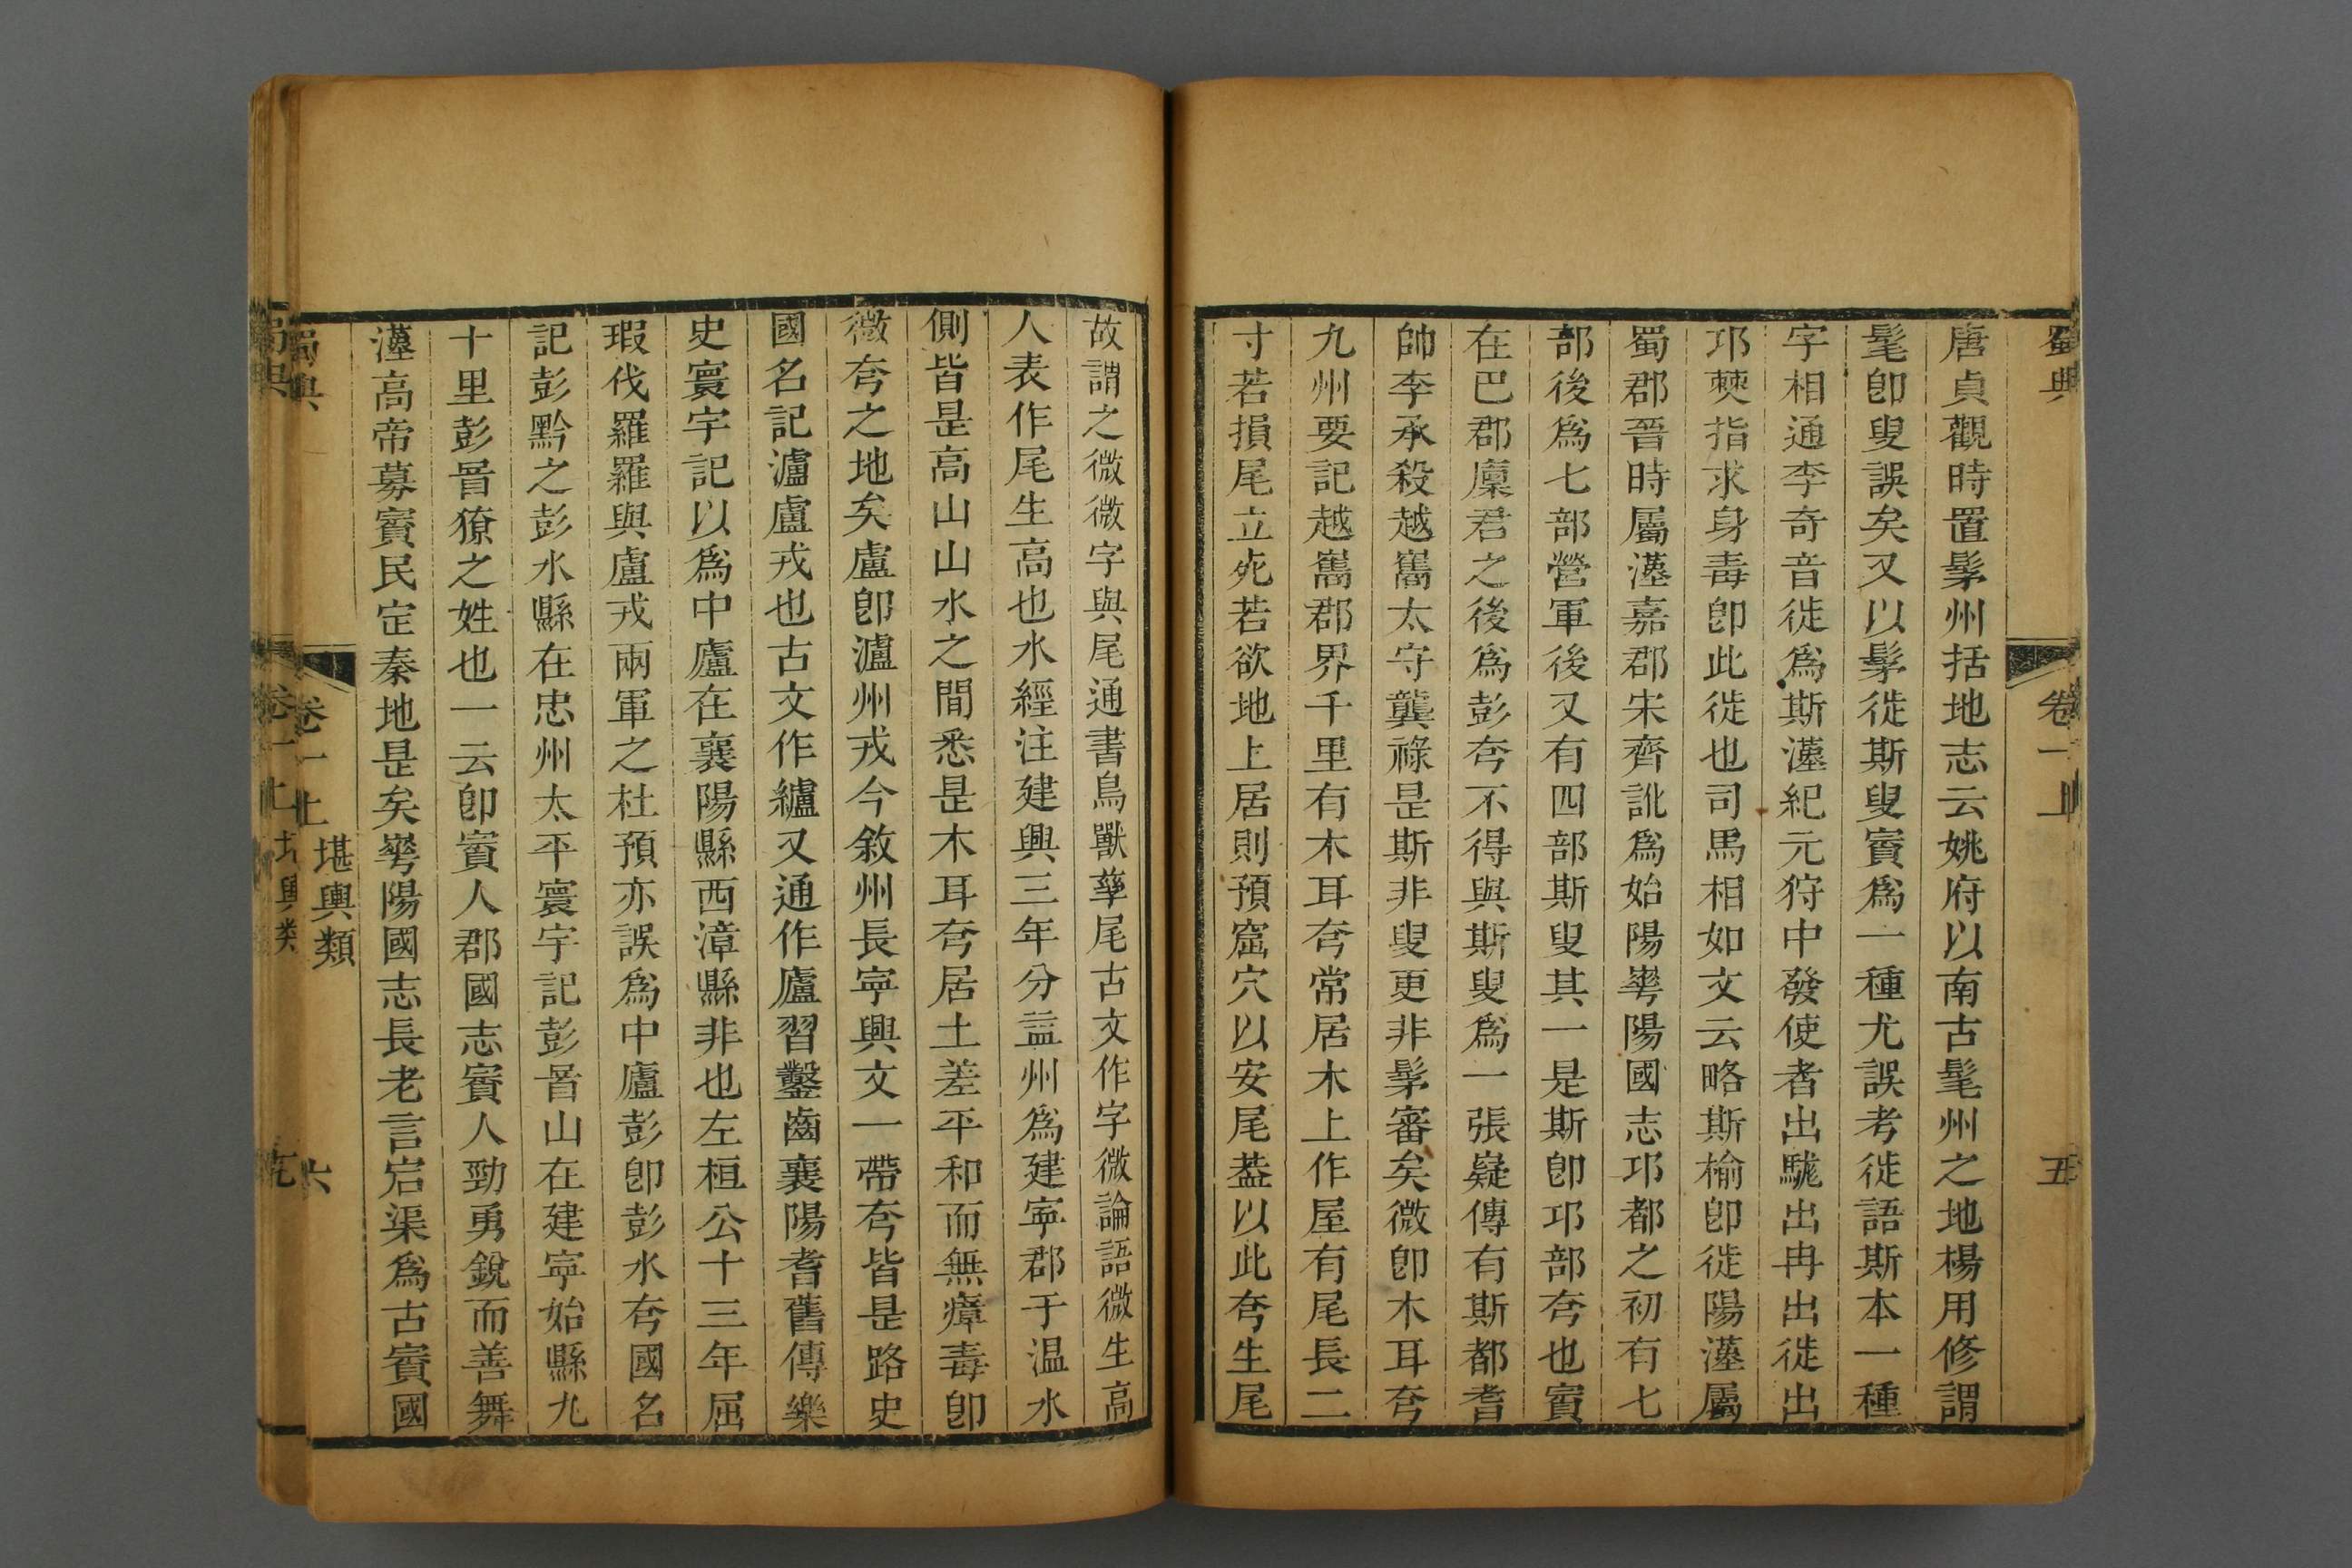 蜀典
卷一上
五
唐貞觀時置髳州括地志云姚府以南古髦州之地楊用修謂
髦卽叟誤矣又以髳徙斯叟賨爲一種尤誤考徙語斯本一種
字相通李奇音徙爲斯漢紀元狩中發使者出駹出冉出徙出
邛僰指求身毒卽此徙也司馬相如文云略斯榆卽徙陽漢屬
蜀郡晉時屬漢嘉郡宋齊訛爲始陽華陽國志邛都之初有七
部後爲七部營軍後又有四部斯叟其一是斯卽邛部夸也賨
在巴郡廩君之後爲彭夸不得與斯叟爲一張嶷傳有斯都耆
帥李承殺越巂太守龔祿是斯非叟更非髳審矣微卽木耳夸
九州要記越巂郡界千里有木耳夸常居木上作屋有尾長二
寸若損尾立死若欲地上居則預窟穴以安尾葢以此夸生尾
故謂之微微字與尾通書鳥獸孳尾古文作字微論語微生高
人表作尾生高也水經注建興三年分益州爲建寧郡于温水
側皆是高山山水之間悉是木耳夸居土差平和而無瘴毒卽
微夸之地矣盧卽瀘州戎今敘州長寧興文一帶夸皆是路史
國名記瀘盧戎也古文作纑又通作廬習鑿齒襄陽耆舊傳樂
史寰宇記以爲中廬在襄陽縣西漳縣非也左桓公十三年屈
瑕伐羅羅與盧戎兩軍之杜預亦誤爲中廬彭卽彭水夸國名
記彭黔之彭水縣在忠州太平寰宇記彭晉山在建寧始縣九
十里彭晉獠之姓也一云卽賨人郡國志賨人勁勇銳而善舞
漢高帝募賨民定秦地是矣華陽國志長老言宕渠爲古賨國
蜀典
卷一上
堪輿類
六